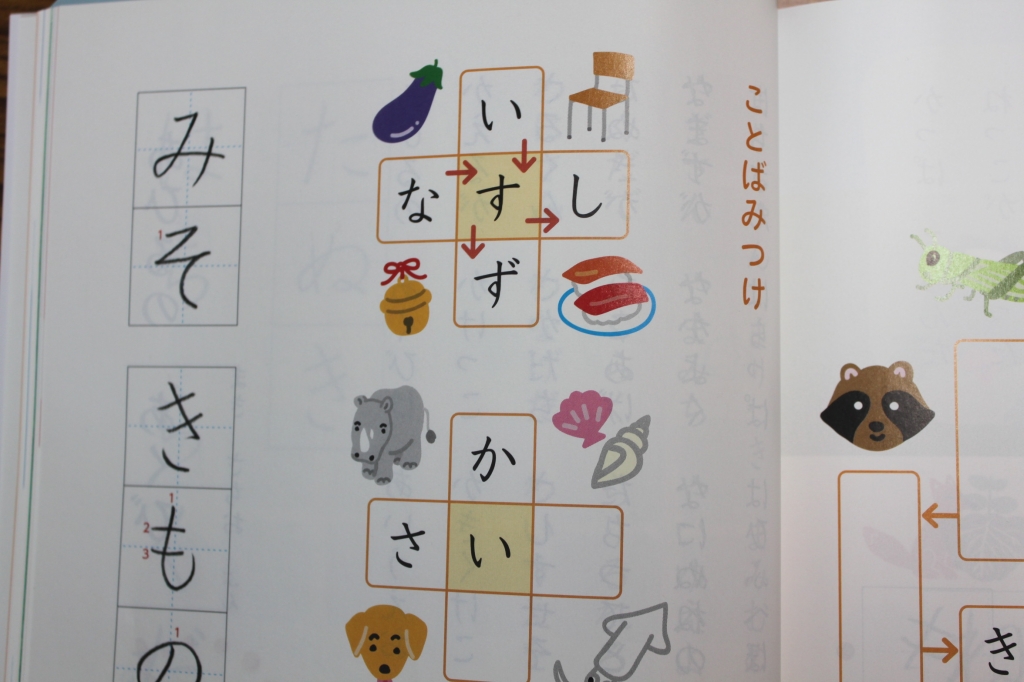 ことばみつけ
い
なすし
ず
か
さい
みそ
きもの
き